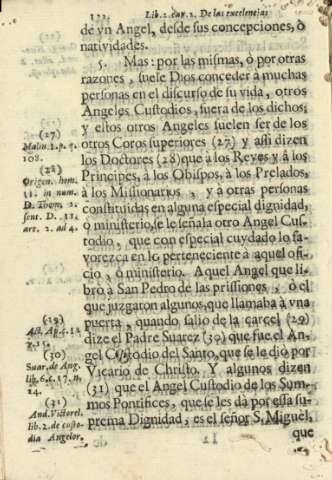 132. Lib. 2. cap. 2. De las excelencias
de vn Angel, desde sus concepciones, ò
natividades.
5. Mas: por las mismas, ò por otras
razones, suele Dios conceder à muchas
personas en el discurso de su vida, otros
Angeles Custodios, fuera de los dichos;
y estos otros Angeles suelen ser de los
otros Coros superiores (27) y assi dizen
los Doctores (28) que à los Reyes y à los
Principes, à los Obispos, à los Prelados,
à los Missionarios, y à otras personas
constituidas en alguna especial dignidad,
ò ministerio, se le señala otro Angel Cus-
todio, que con especial cuydado lo fa-
vorezca en lo perteneciente à aquel ofi-
cio, ò ministerio. Aquel Angel que li-
brò à San Pedro de las prissiones, ò el
que juzgaton algunos, que llamaba à vna
puerta, quando salio de la carcel (29)
dize el Padre Suarez (30) que fue el An-
gel Custodio del Santo, que se le dio por
Vicario de Christo. Y algunos dizen
(31) que el Angel Custodio de los Sum-
mos Pontifices, que se les dà por essa su-
prema Dignidad, es el señor S. Miguel,
que
(27)
108.
(28)
Origen. hom.
11. in num.
D. Thom. 2.
sent. D. 11.
art. 2. ad 4.
(29)
Act. Ap. c. 12.
v. 15.
(30)
Suar. de Ang.
lib. 6. c. 17. n.
24.
(31)
And. Victorel.
lib. 2. de custo-
dia Angelor.